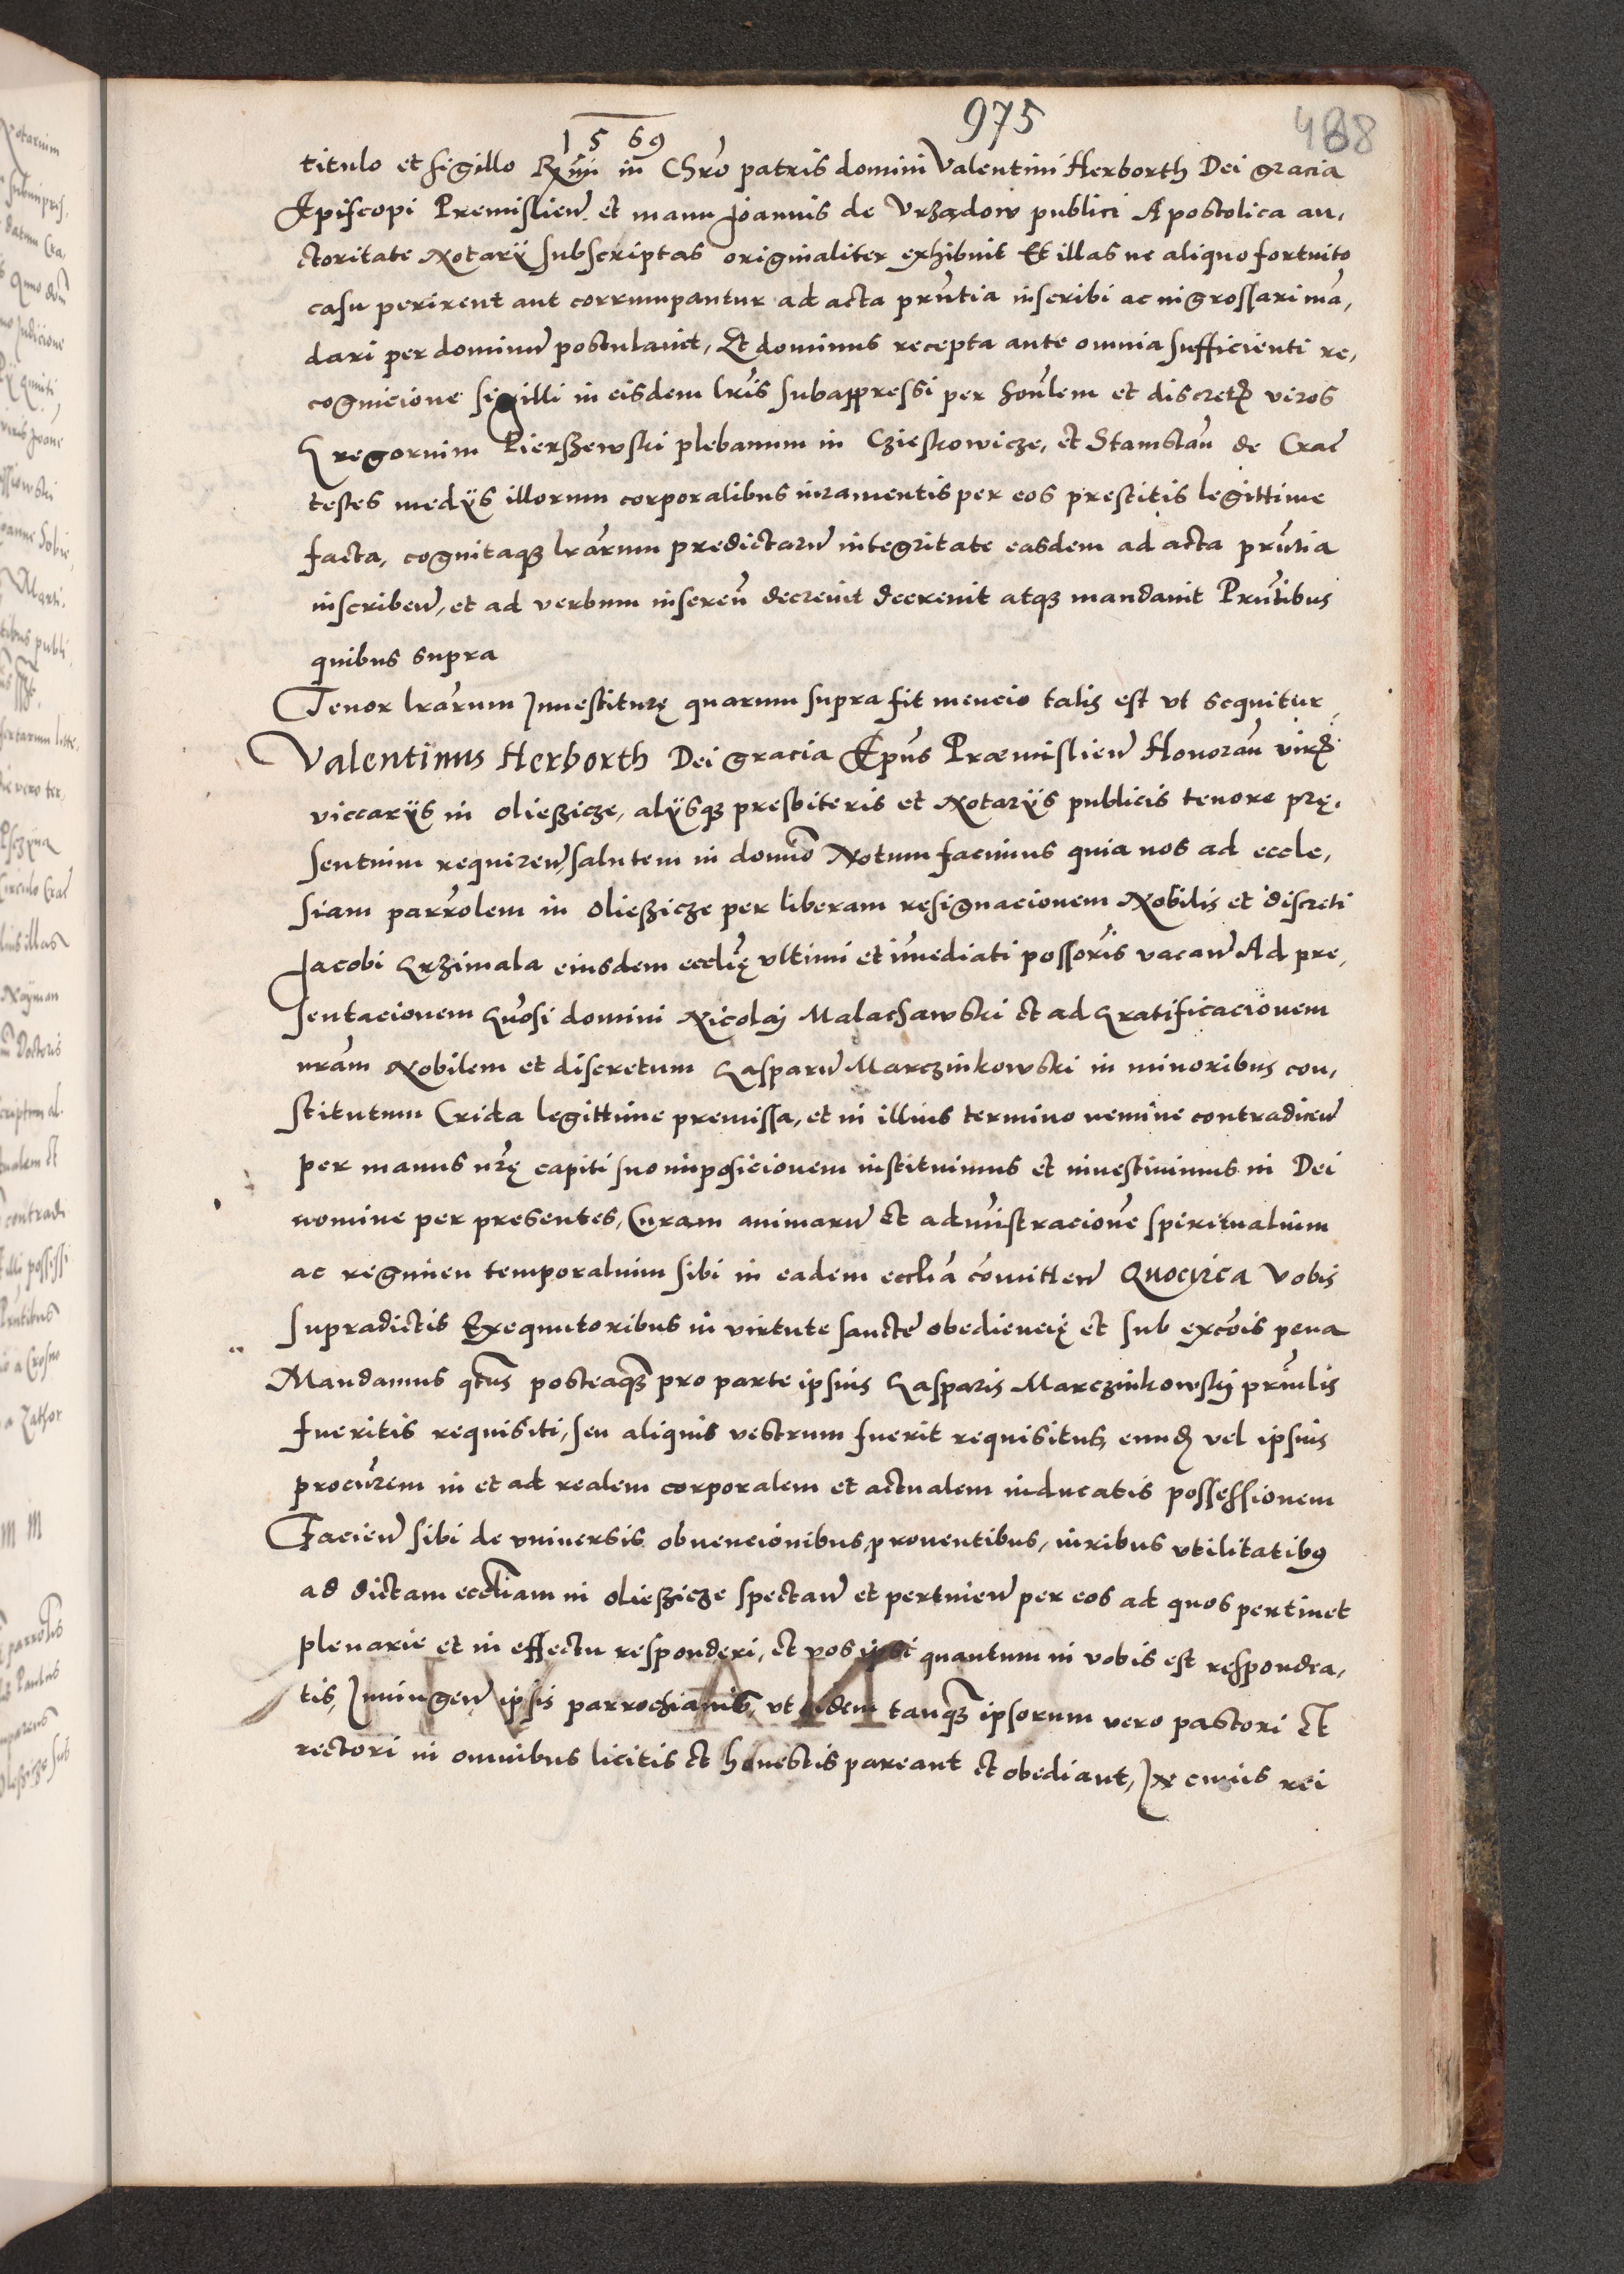 975
488
1569
titulo et sigillo Rxmi in Chro patris domini Valentini Herborth Dei gracia
Episcopi Premislien et manu Joannis de Vrzędow publici Apostolica au,
ctoritate Notarÿ subscriptas originaliter exhibuit Et illas ne aliquo fortuito
casu perirent aut corrumpantur ad acta prntia inscribi ac ingrossari mā,
dari per dominum postulauit, Et dominus recepta ante omnia sufficienti re,
cognicione sigilli in eisdem lris subappressi per honlem et discretos viros
Gregorium Pierszewski plebanum in Czieskowicze, et Stanislaū de Crac
testes medÿs illorum corporalibus iuramentis per eos prestitis legittime
facta, cognitaque lrarum predictarum integritate easdem ad acta prntia
inscriben, et ad verbum inseren decreuit decreuit atque mandauit Prntibus
quibus supra
Tenor lrarum Inuestiturę quarum supra fit mencio talis est vt sequitur
Valentinus Herborth Dei gracia Epus Præmislien Honoran viris
viccarÿs in Olieszicze, alÿsque presbiteris et Notarÿs publicis tenore prę,
sentium requiren, salutem in domno Notum facimus quia nos ad eccle,
siam parrolem in Olieszicze per liberam resignacionem Nobilis et discreti
Jacobi Grzimala eiusdem ecclię vltimi et imediati possoris vacan Ad pre,
sentacionem Gnosi domini Nicolaj Malachawski et ad Gratificacionem
nram Nobilem et discretum Gasparum Marczinkowski in minoribus con,
stitutum Crida legittime premissa, et in illius termino nemine contradicen
per manus nrę capiti suo imposicionem instituimus et inuestiuimus in Dei
nomine per presentes, Curam animarum et administracione spiritualium
ac regimen temporalium sibi in eadem ecclia comitten Quocirca Vobis
supradictis Exequutoribus in virtute sancte obediencię et sub excois pena
Mandamus qtus posteaquam pro parte ipsius Gasparis Marczinkowskj prnlis
fueritis requisiti, seu aliquis vestrum fuerit requisitus, eundem vel ipsius
procurem in et ad realem corporalem et actualem inducatis possessionem
Facien sibi de vniuersis obuencionibus, prouentibus, iuribus vtilitatibus
ad dictam eccliam in Olieszicze spectan et pertinen per eos ad quos pertinet
plenarie et in effectu responderi, et vos ipsi quantum in vobis est respondea,
tis, Iniungen ipsis parrochianis, vt eidem tanquam ipsorum vero pastori et
rectori in omnibus licitis et honestis pareant et obediant, In cuius rei